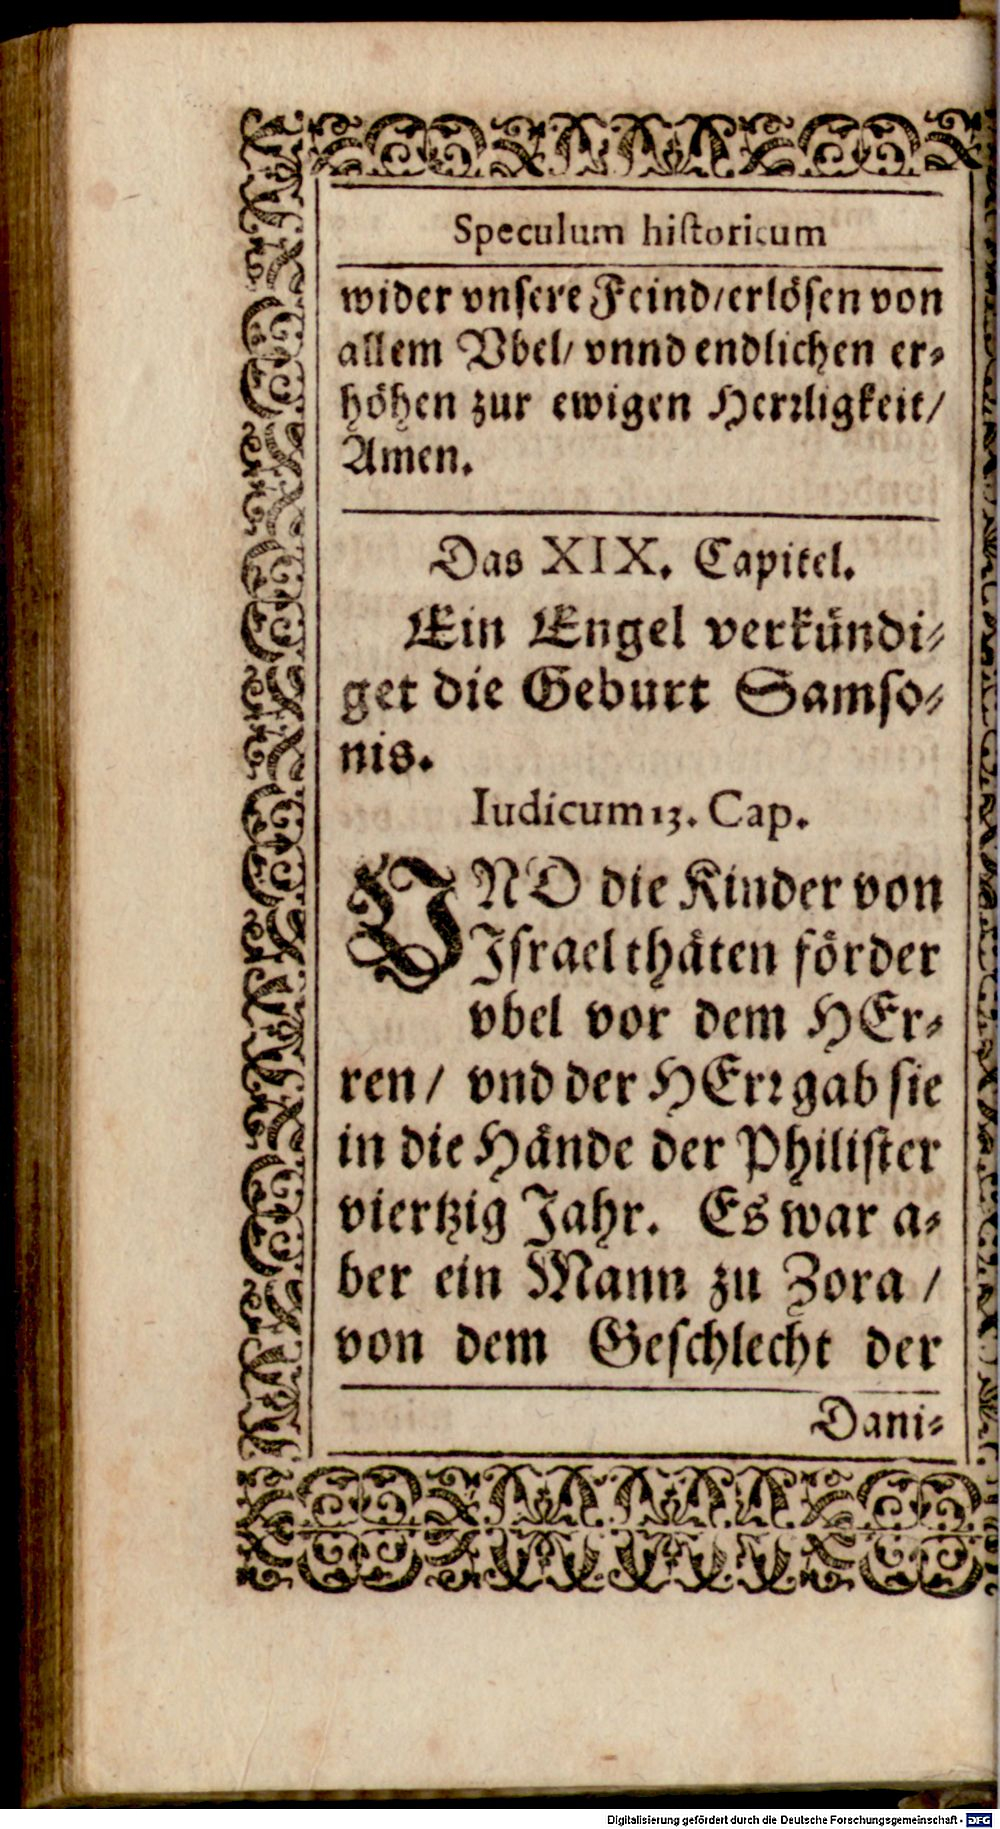 Speculum historicum
wider vnsere Feind/erlösen von
allem Vbel/ vnnd endlichen er-
höhen zur ewigen Herrligkeit/
Amen.
Das XIX. Capitel.
Ein Engel verkündi-
get die Geburt Samso-
nis.
Iudicum 13. Cap.
VND die Kinder von
Israel thäten förder
vbel vor dem HEr-
ren/ vnd der HErr gab sie
in die Hände der Philister
viertzig Jahr. Es war a-
ber ein Mann zu Zora/
von dem Geschlecht der
Dani-
Digitalisierung gefördert durch die Deutsche Forschungsgemeinschaft - DFG